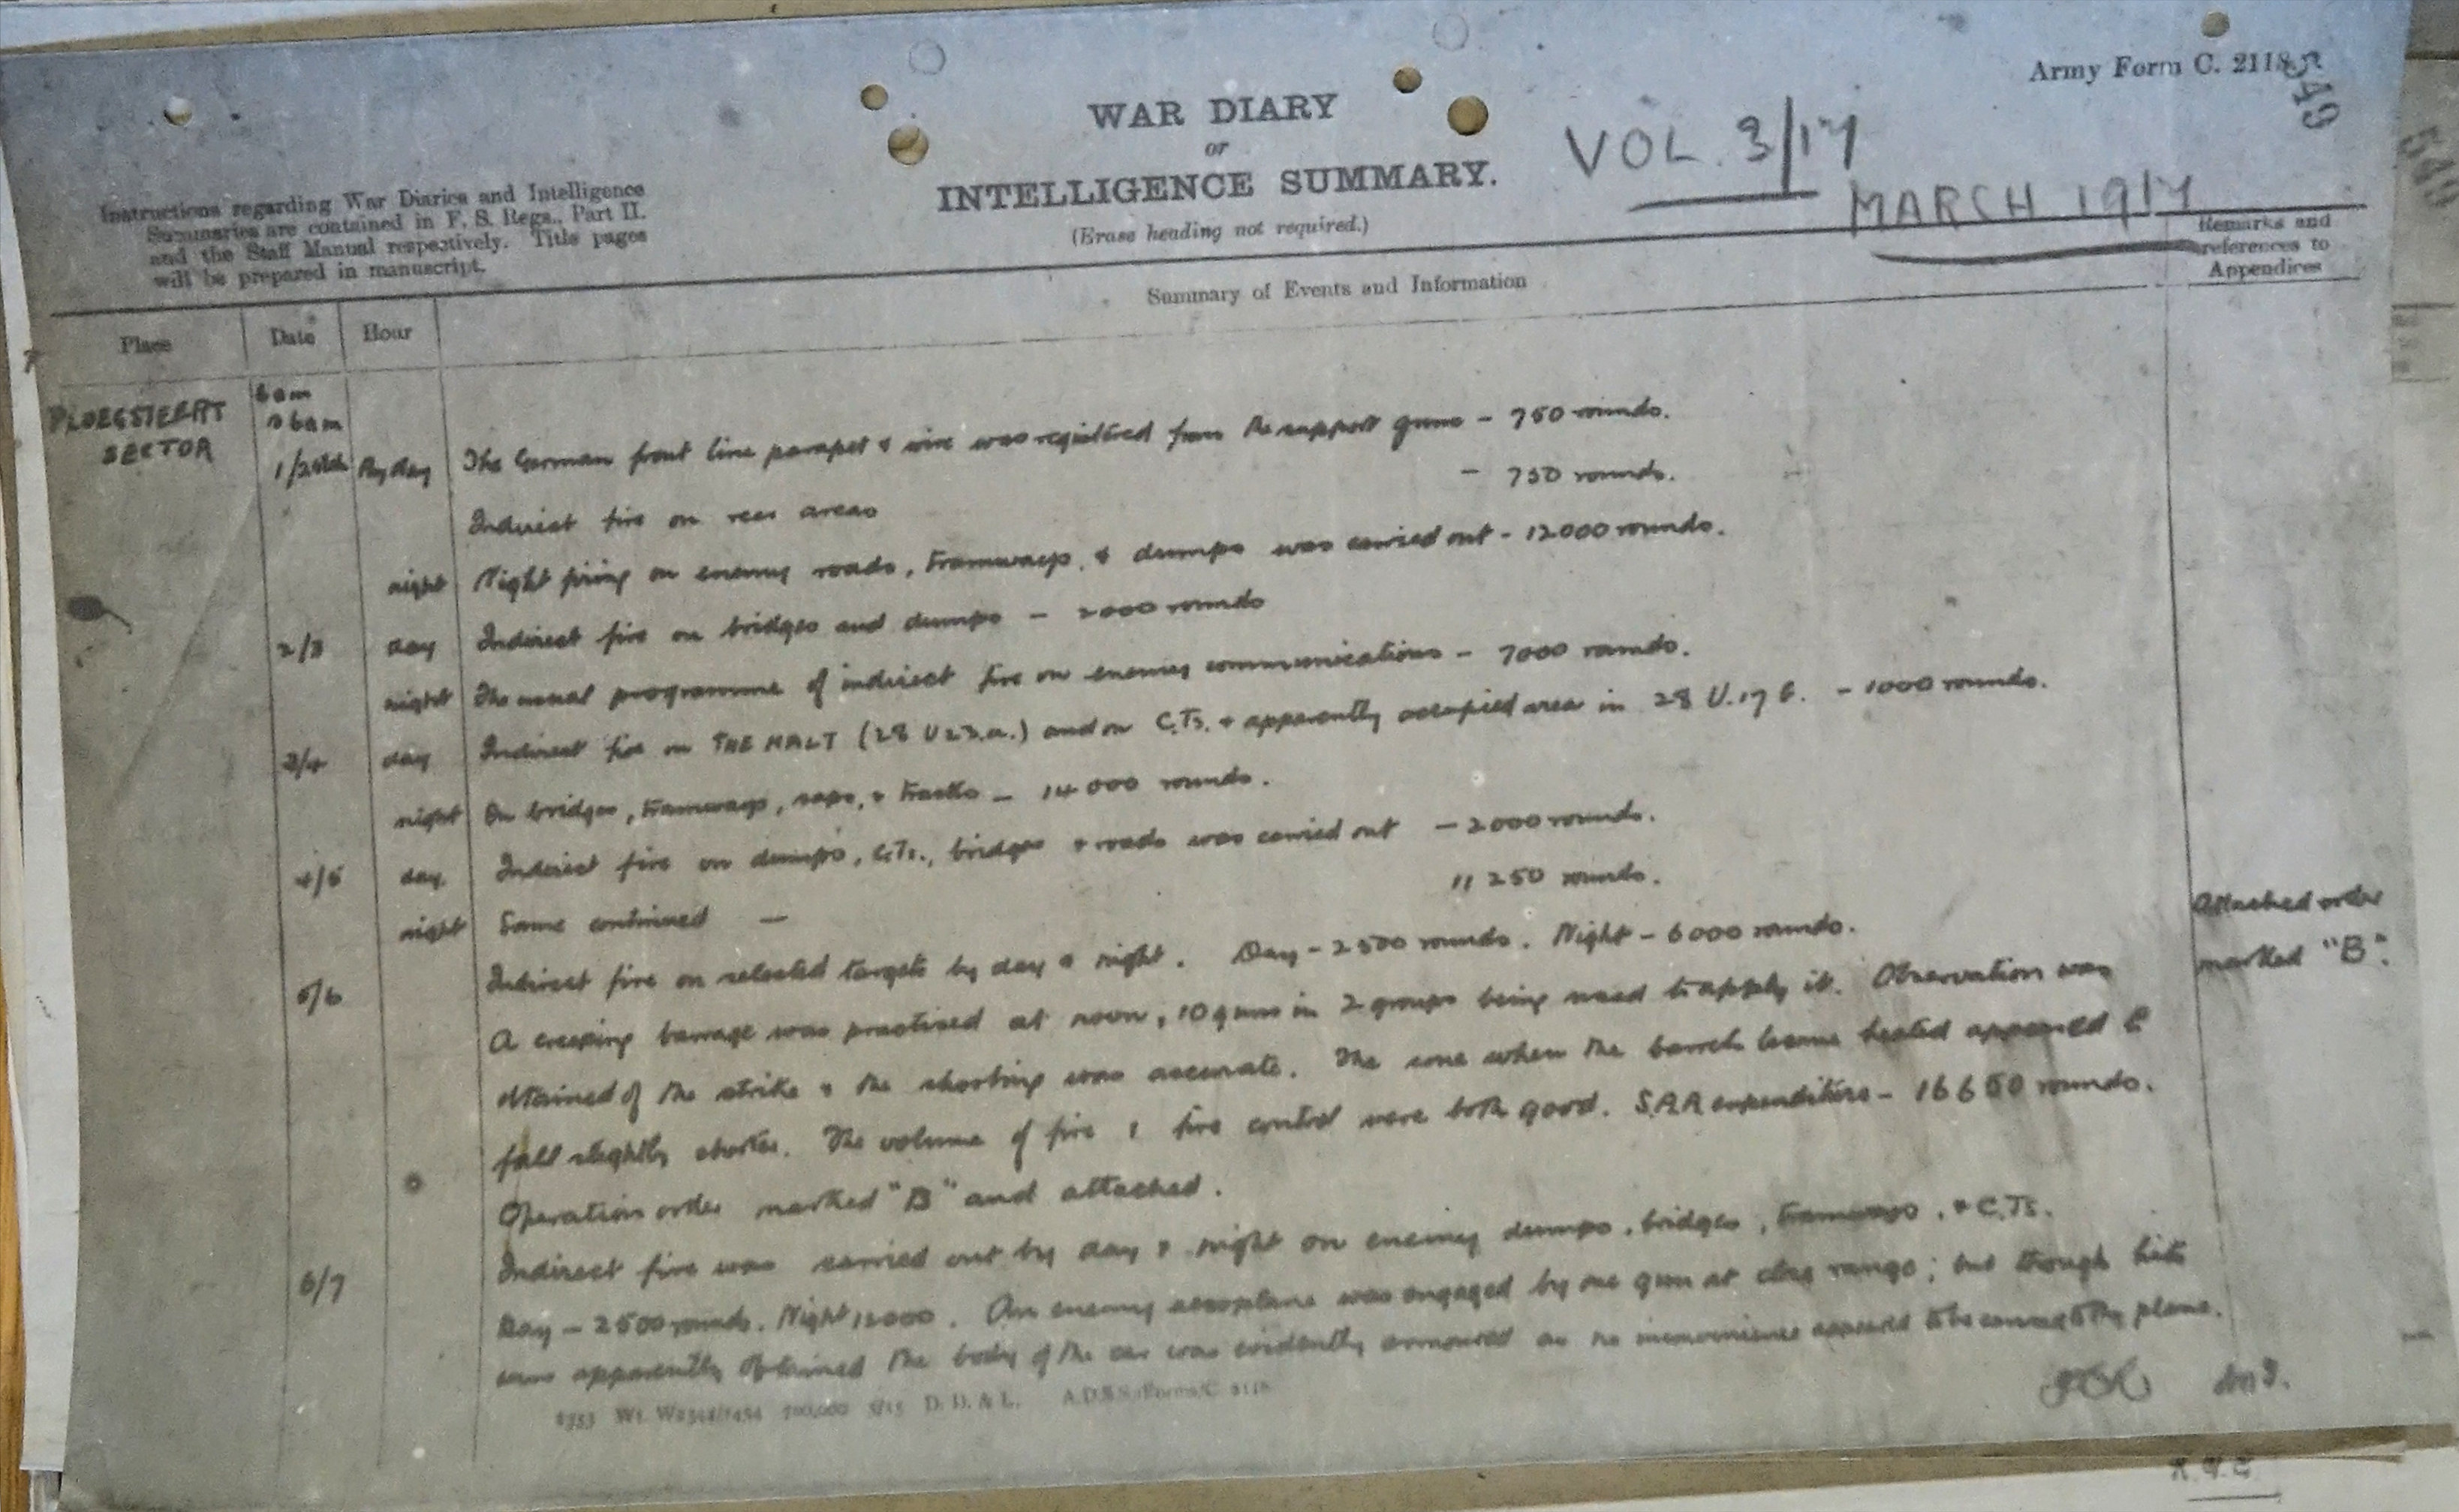 Army Form C. 2118.
549
WAR DIARY
or
INTELLIGENCE SUMMARY.
(Erase heading not required.)
VOL. 3/17
MARCH 1917
Instructions regarding War Diaries and Intelligence
Summaries are contained in F. S. Regs., Part II.
and the Staff Manual respectively. Title pages
will be prepared in manuscript.
Summary of Events and Information
Remarks and
references to
Appendices
Place
Date
Hour
PLOEGSTEERT
SECTOR
6 am
6 am
1/2 By day The German front line parapet & wire was registered from the support guns - 750 rounds.
Indirect fire on rear areas - 750 rounds.
night Night firing on enemy roads, tramways, & dumps was carried out - 12000 rounds.
2/3 day Indirect fire on bridges and dumps - 2000 rounds
night The usual programme of indirect fire on enemy communications - 7000 rounds.
3/4 day Indirect fire on THE HALT (28 U 23.a.) and on C.Ts. & apparently occupied area in 28 U.17 - 1000 rounds.
night On bridges, tramways, saps, & tracks - 14000 rounds.
4/5 day Indirect fire on dumps, C.Ts., bridges & roads was carried out - 2000 rounds.
night Same continued - 11250 rounds.
5/6 Indirect fire on selected targets by day & night. Day - 2500 rounds. Night - 6000 rounds.
Attached order
marked "B".
A creeping barrage was practised at noon, 10 guns in 2 groups being used to apply it. Observation was
obtained of the strike & the shooting was accurate. The cone when the barrels became heated appeared to
fall slightly shorter. The volume of fire & fire control were both good. S.A.A expenditure - 16650 rounds.
Operation order marked "B" and attached.
6/7 Indirect fire was carried out by day & night on enemy dumps, bridges, tramways, & C.Ts.
Day - 2500 rounds. Night 12000. An enemy aeroplane was engaged by one gun at close range; but though hits
were apparently obtained the body of the car was evidently armoured as no inconvenience appeared to be caused to the plane.
D. D. & L.